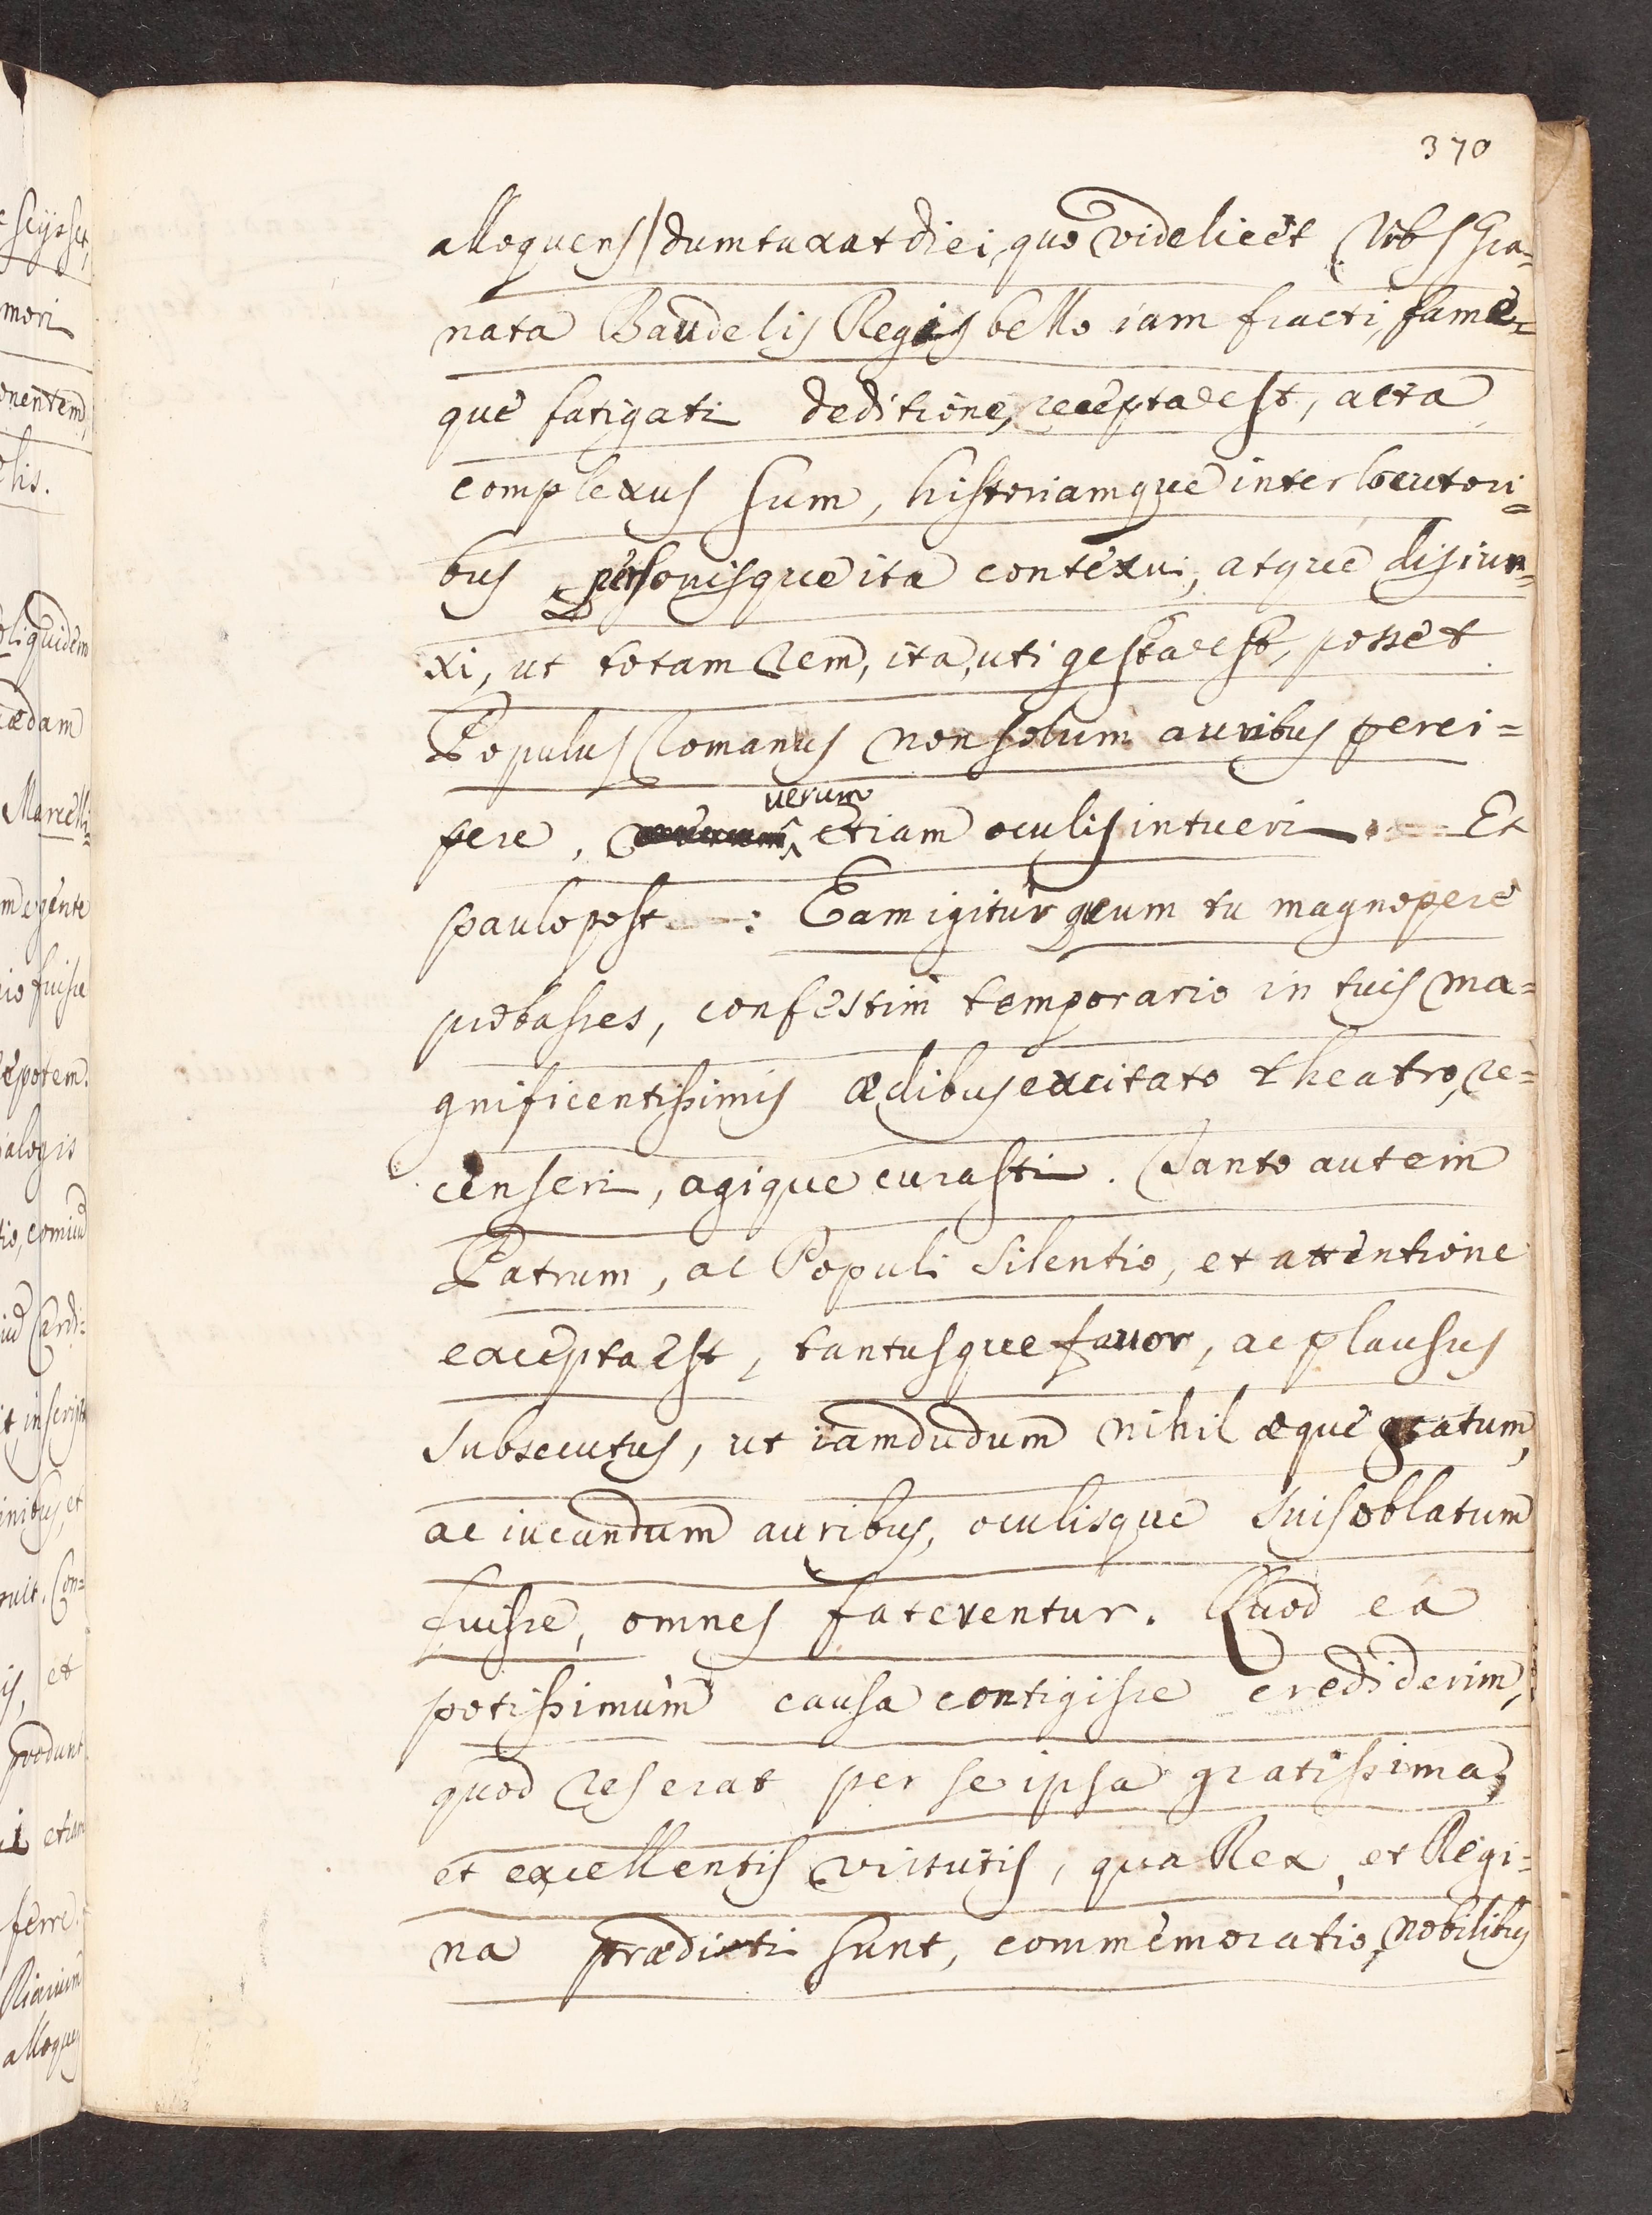 370
alloquens / dumtaxat diei, quo videlicet Urbs Gra=
nata Baudelis Regis bello iam fracti, fame=
que fatigati deditione, recepta est, acta
complexus sum, historiamque interlocutori=
bus personisque ita contexui, atque disiun=
xi, ut totam rem, ita, uti gesta est, posset
Populus Romanus non solum auribus perci=
pere, verum etiam oculis intueri Et
paulo post : Eam igitur quum tu magnopere
probasses, confestim temporario in tuis ma=
gnificentissimis ædibus excitato theatro, re=
censeri, agique curasti. Tanto autem
Patrum, ac Populi silentio, et attentione
excepta est, tantusque fauor, ac plausus
subsecutus, ut iamdudum nihil æque gratum,
ac iucundum auribus, oculisque suis oblatum
fuisse, omnes faterentur. Quod ea
potissimum causa contigisse crediderim,
quod res erat per se ipsa gratissima,
et excellentis virtutis, qua Rex, et Regi=
na prædicti sunt, commemoratio, nobilibus
scijsset,
mori
onentem,
liquidem
Marcelli=
fuisse
nepotem.
ialogis
Cardi=
inscript
inibus, et
Con=
et
produnt
etiam
ferre.
Riarium
alloquens